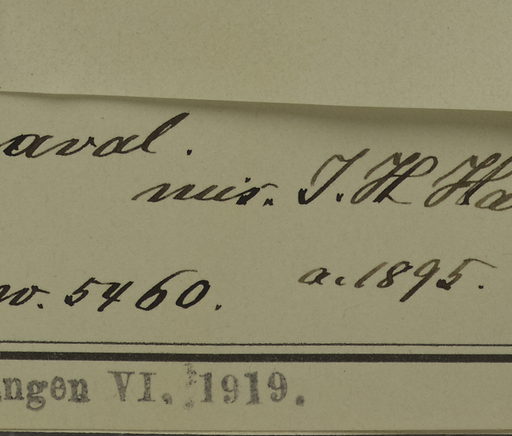 aval.
mis. J. H Ha
no. 5460. a. 1895.
ngen VI. 1919.